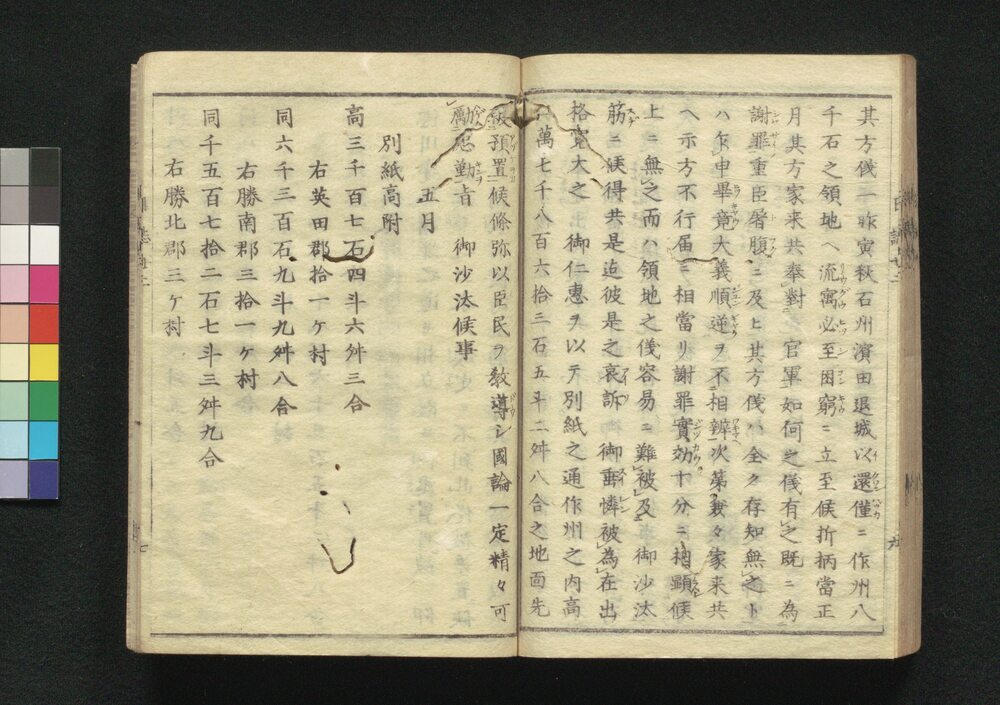 其方儀一昨寅秋石州濱田退城以還僅ニ作州八
千石之領地ヘ流寓必至困窮ニ立至候折柄當正
月其方家来共奉對官軍如何之儀有之既ニ為
謝罪重臣屠腹ニ及ヒ其方儀ハ全ク存知無之ト
ハ乍申畢竟大義順逆ヲ不相辨次第我々家来共
ヘ示方不行届ニ相當リ謝罪實効十分ニ相顕候
上ニ無之而ハ領地之儀容易ニ難被及御沙汰
筋ニ候得共是迄彼是之哀訴御垂憐被為在出
格寛大之御仁惠ヲ以テ別紙之通作州之内高
萬七千八百六拾三石五斗二舛八合之地面先
預置候條弥以臣民ヲ教導シ國論一定精々可
勵忠勤旨御沙汰候事
五月
別紙高附
高三千百七石四斗六舛三合
右英田郡拾一ケ村
同六千三百石九斗九舛八合
右勝南郡三拾一ケ村
同千五百七拾二石七斗三舛九合
右勝北郡三ケ村